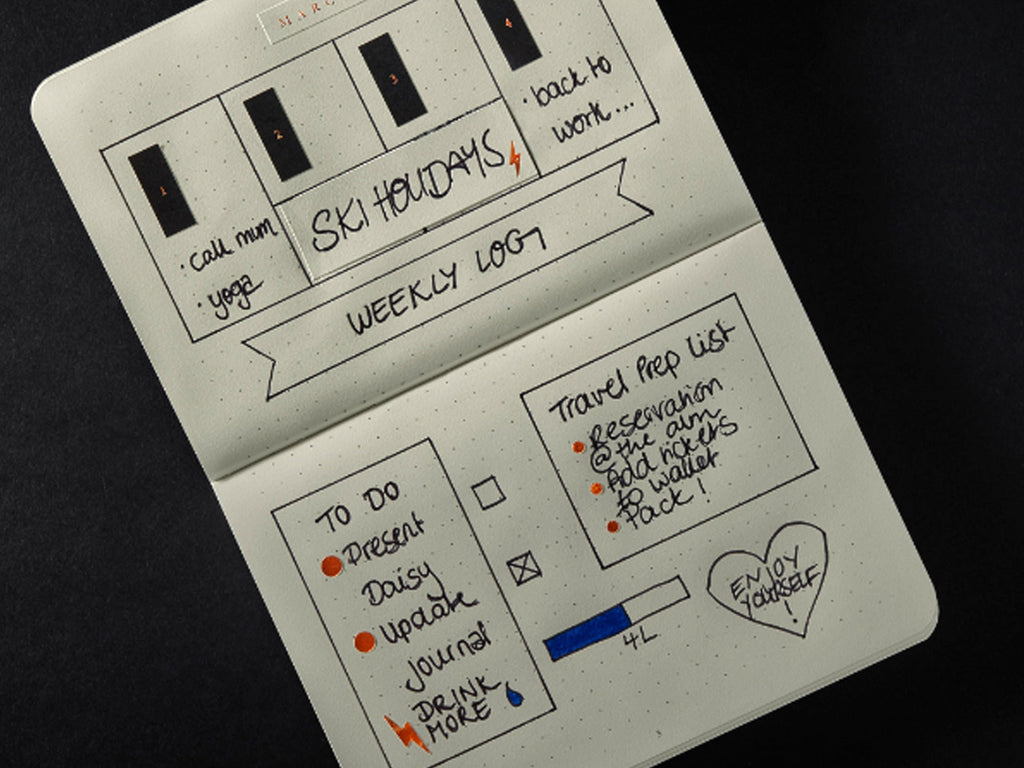 MARC
1
2
3
4
· call mum
· yoga
SKI HOLIDAYS
· back to
work...
WEEKLY LOG
TO DO
Present
Daisy
Update
journal
DRINK
MORE
Travel Prep List
Reservation
@the alm
Add tickets
to wallet
Pack!
4L
ENJOY
YOURSELF
!